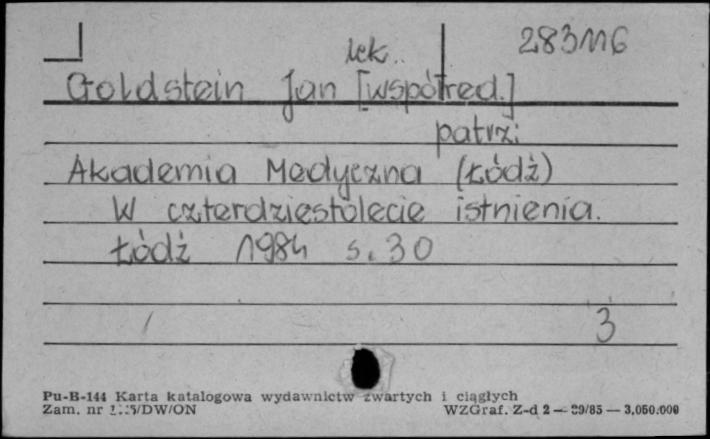 283116
lek.
Goldstein Jan [współred.]
patrz:
Akademia Medyczna (Łódź)
W czterdziestolecie istnienia.
Łódź 1984 s. 30
3
Pu-B-144 Karta katalogowa wydawnictw zwartych i ciągłych
Zam. nr /DW/ON WZGraf. Z-d 2 — 89/85 — 3,050.000